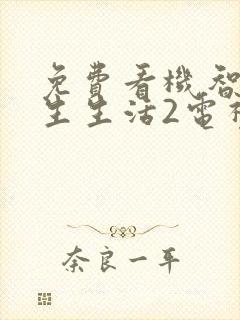 免費看機智
生生活2電
奈良一平